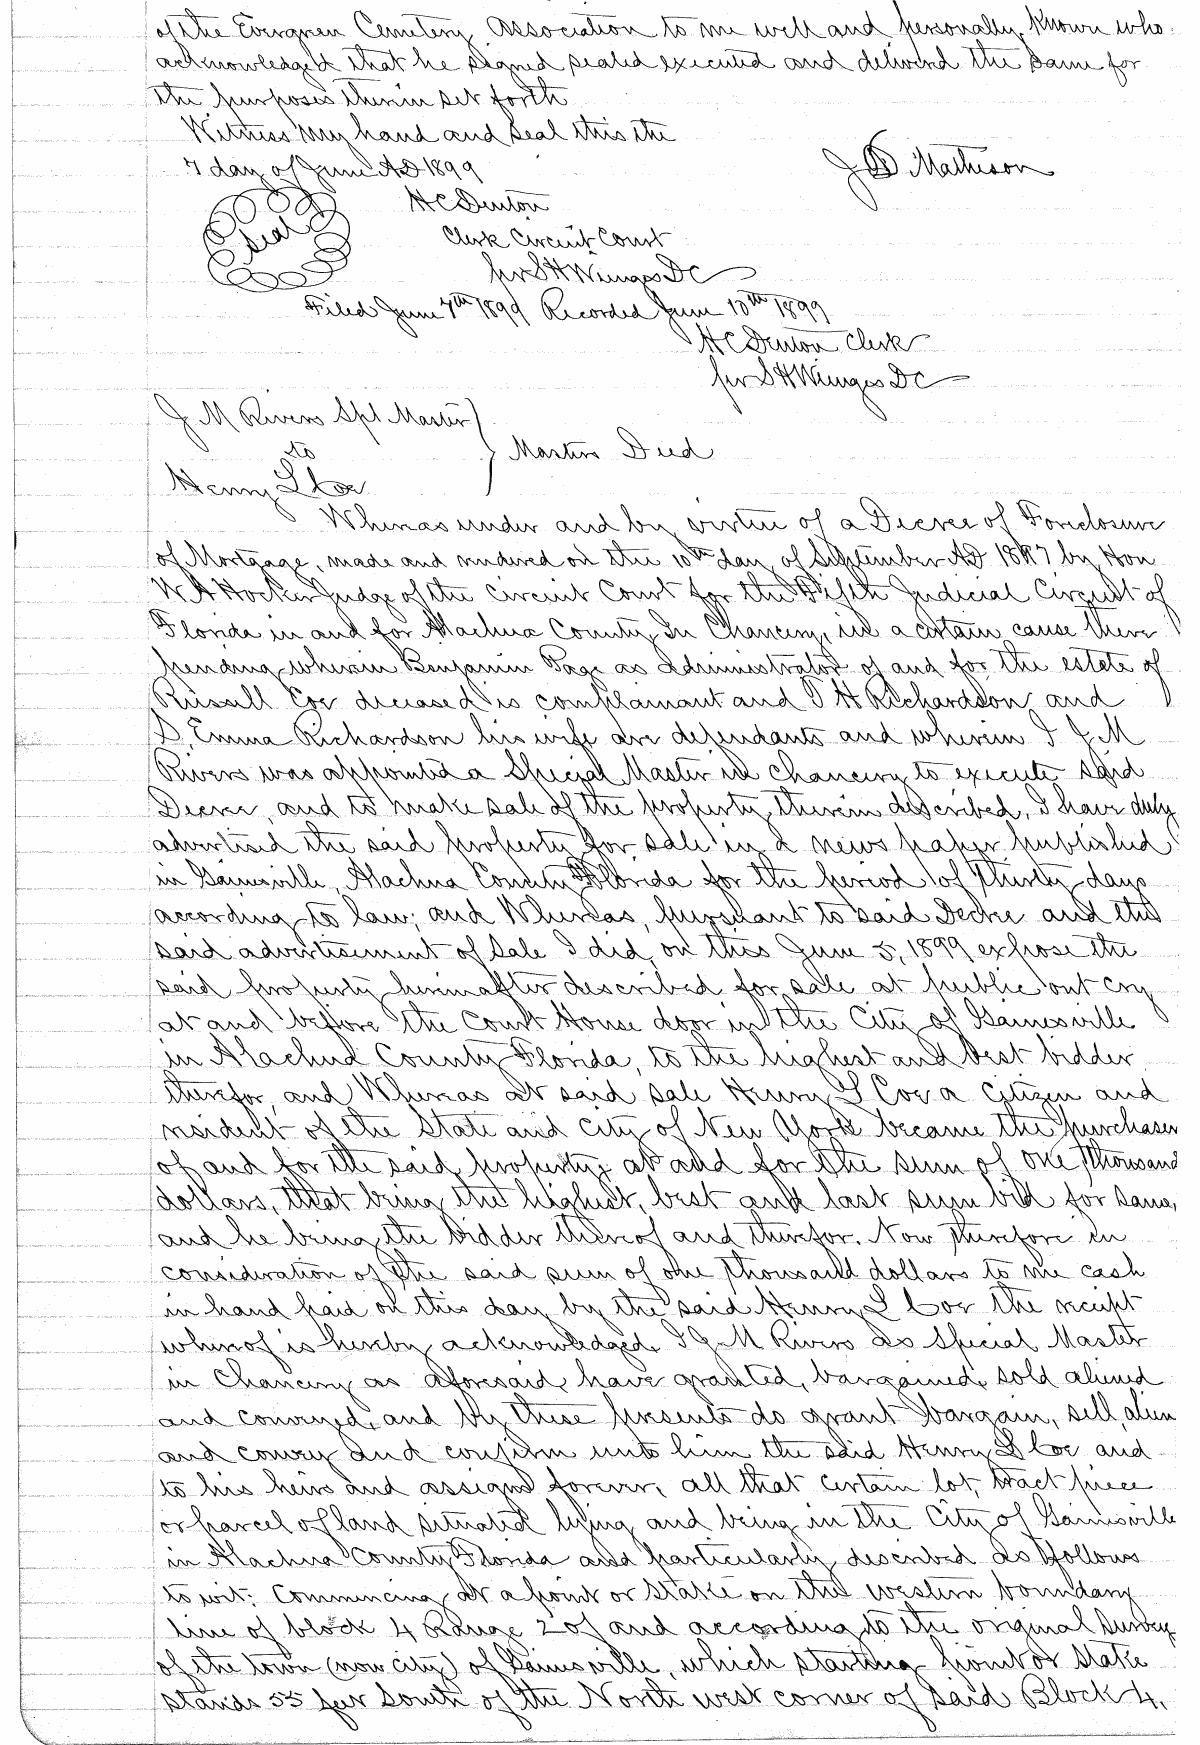 of the Evergreen Cemetery Association to me well and personally known who
acknowledged that he signed sealed executed and delivered the same for
the purposes therein set forth
Witness my hand and seal this the
7 day of June AD 1899
J D Matheson
Seal
H C Denton
Clerk Circuit Court
per S H Wienges DC
Filed June 7th 1899 Recorded June 10th 1899
H C Denton Clerk
per S H Wienges DC
J M Rivers Spl Master
to
Masters Deed
Henry L Coe
Whereas under and by virtue of a Decree of Foreclosure
of Mortgage, made and rendered on the 10th day of September AD 1897 by Hon
W A Hocker Judge of the Circuit Court for the Fifth Judicial Circuit of
Florida in and for Alachua County In Chancery, in a certain cause there
pending wherein Benjamin Page as Administrator of and for the estate of
Russell Coe deceased is complainant and T H Richardson and
S. Emma Richardson his wife are defendants and wherein I J M
Rivers was appointed a Special Master in Chancery to execute said
Decree, and to make sale of the property therein described, I have duly
advertised the said property for sale in a news paper published
in Gainesville, Alachua County Florida for the period of thirty days
according to law; and Whereas, pursuant to said Decree and the
said advertisement of sale I did, on this June 5, 1899 expose the
said property hereinafter described for sale at public out cry
at and before the Court House door in the City of Gainesville
in Alachua County Florida, to the highest and best bidder
therefor, and Whereas at said sale Henry L Coe a citizen and
resident of the State and City of New York became the purchaser
of and for the said property, at and for the sum of one thousand
dollars, that being the highest, best and last sum bid for same,
and he being the bidder thereof and therefor. Now therefore in
consideration of the said sum of one thousand dollars to me cash
in hand paid on this day by the said Henry L Coe the receipt
whereof is hereby acknowledged, I J M Rivers as Special Master
in Chancery as aforesaid, have granted, bargained, sold aliened
and conveyed, and by these presents do grant bargain, sell, alien
and convey and confirm unto him the said Henry L Coe and
to his heirs and assigns forever, all that certain lot, tract piece
or parcel of land situated lying and being in the City of Gainesville
in Alachua County Florida and particularly described as follows
to wit: Commencing at a point or stake on the western boundary
line of block 4 Range 2 of and according to the original survey
of the town (now city) of Gainesville, which starting point or stake
stands 55 feet South of the North west corner of said Block 4,